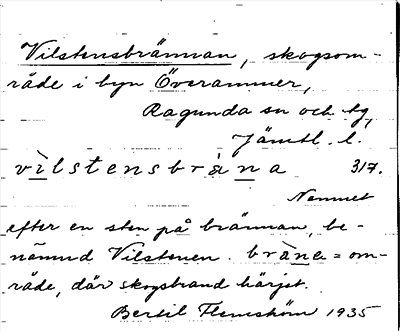 Vilstensbrännan, skogsom-
råde i byn Överammer,
Ragunda sn och tg,
Jämtl. l.
vìlstensbràna 317.
Namnet
efter en sten på brännan, be-
nämnd Vilstenen. bràna = om-
råde, där skogsbrand härjat.
Bertil Flemström 1935